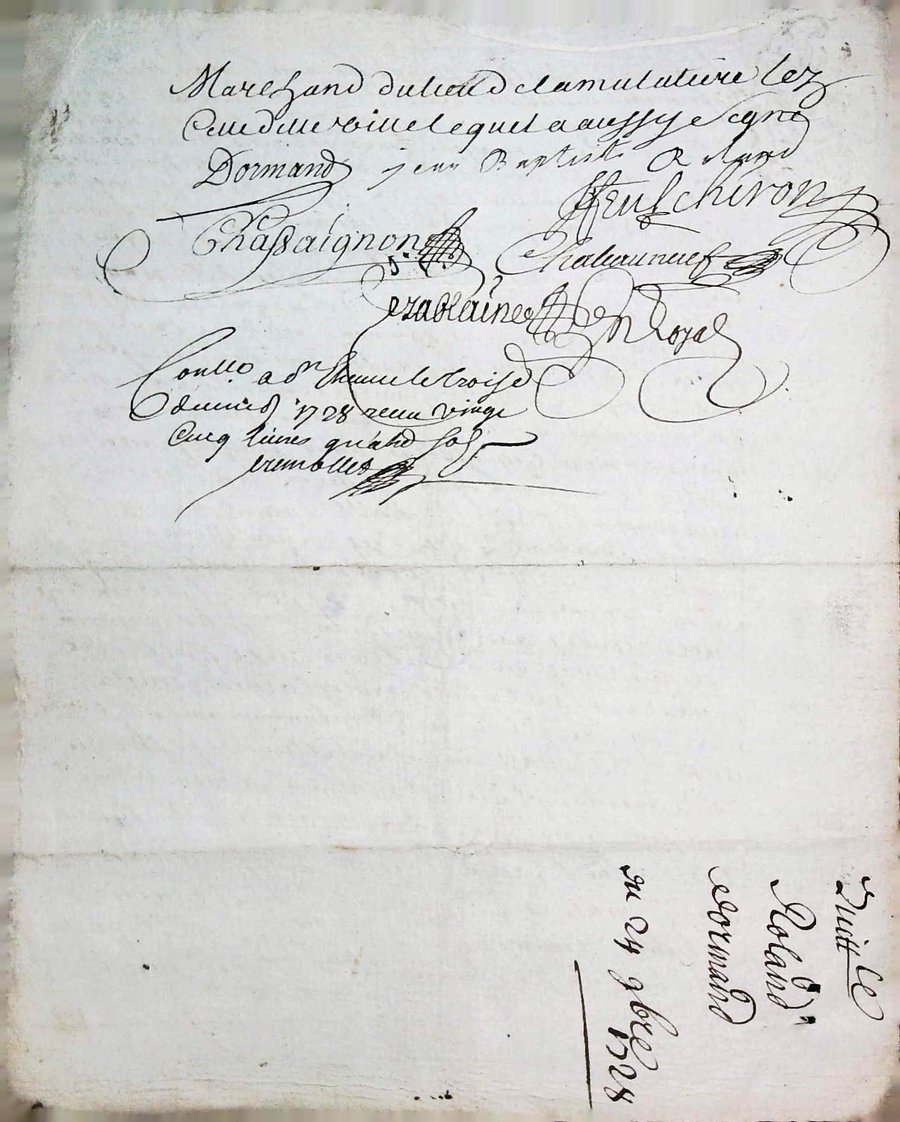 Marchand du lieu de la mulatiere lez
cette ditte ville lequel a aussy signé
Dormand jean Baptiste Roland
Chassaignon
Chiron
Chateauneuf
Delablaine
Royal
Conllé a St Etienne le troise
decembre 1728 receu vingt
cinq livres quatre sols
Quitt ce
Roland
Dormand
du 24 9bre 1728